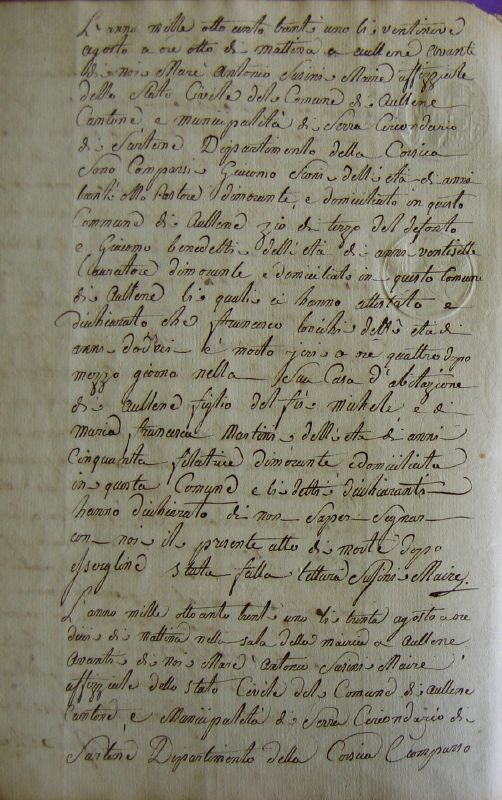 L'anno mille otto cento venti uno li ventinove
agosto a ore otto di mattina a aullene avanti
di noi Marc' Antonio Susini Maire uffizziale
dello Stato Civile del Comune di Aullene
Cantone e municipalità di Serra Circondario
di Sartene Dipartimento della Corsica
Sono Comparsi Giacomo dell'età di anni
venti otto Pastore dimorante e domiciliato in questo
Commune di Aullene zio di terzo del defonto
e Giacomo benedetti dell'età di anni ventisette
Lavuratore dimorante e domiciliato in questo Comune
di Aullene li quali ci hanno attestato e
dichiarato che francesco dell'età di
anni è morto jeri a ore quattro dopo
mezzo giorno nella Sua Casa d'abitazione
di Aullene figlio del fù michele e di
Maria francesca Martini dell'età di anni
Cinquanta filatrice dimorante e domiciliata
in questa Comune e li detti dichiaranti
hanno dichiarato di non Saper Segnar
con noi il presente atto di morte dopo
essergline stata fatta lettura Susini Maire.
L'anno mille otto cento venti uno li trenta agosto a ore
dieci di mattina nella sala della mairia a Aullene
Avanti di noi Marc' Antonio Susini Maire
uffizziale dello stato Civile del Comune di Aullene
Cantone e Municipalità di Serra Circondario di
Sartene Dipartimento della Corsica Comparso